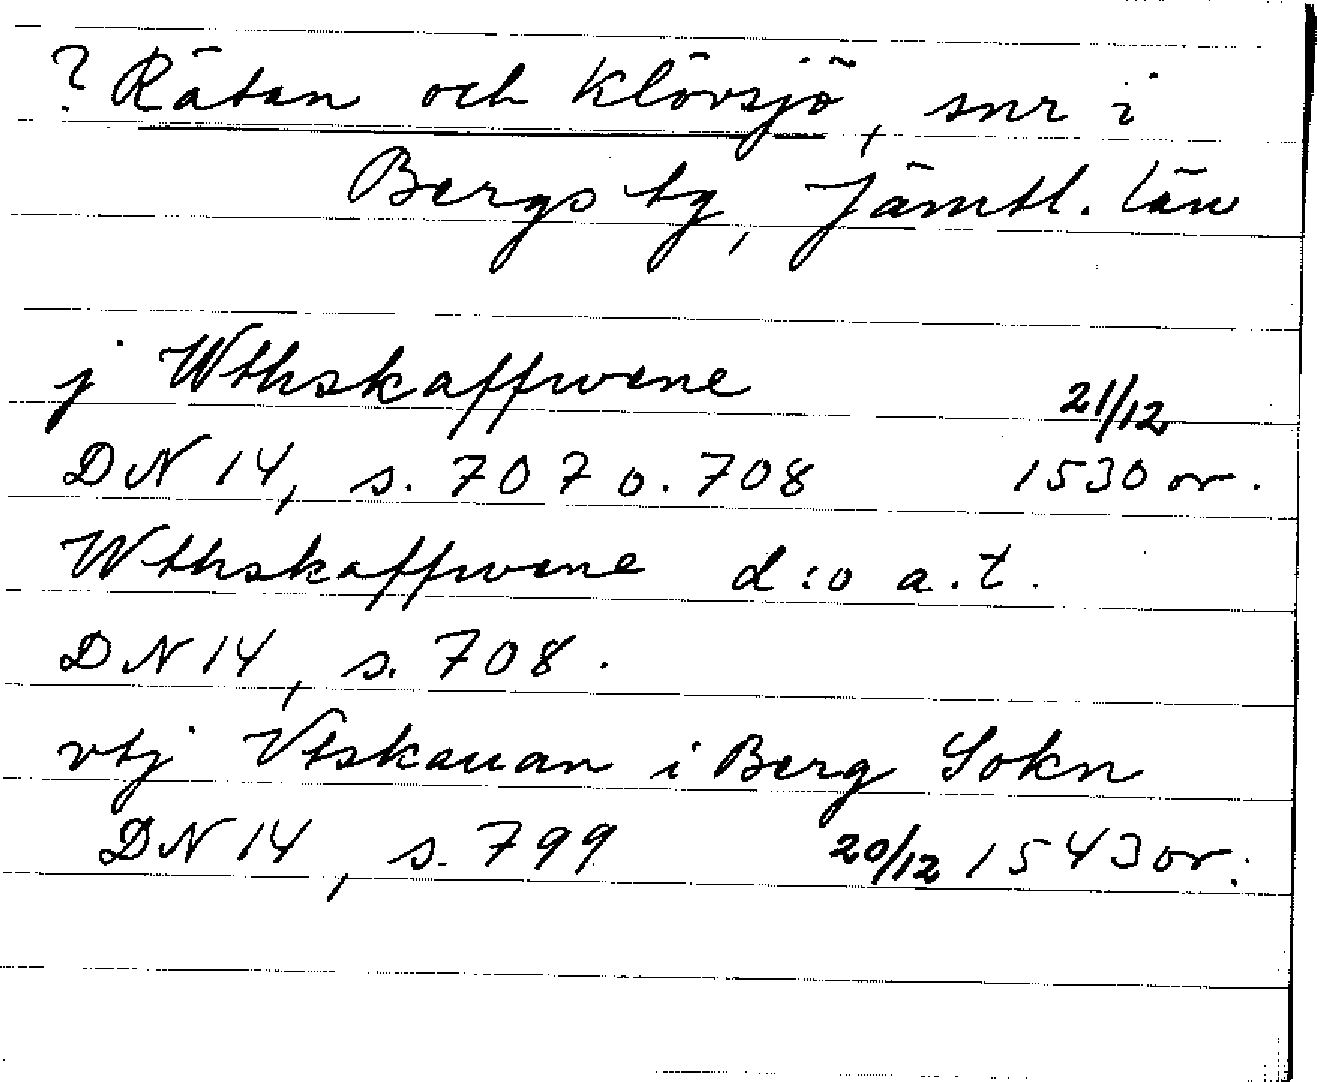 ? Rätan och Klövsjö, snr i
Bergs tg, Jämtl. län
j Wthskaffwene 21/12
DN 14, s. 707 o. 708 1530 or.
Wthskaffwene d:o a.t.
DN 14, s. 708.
vtj Vtskauan i Berg Sokn
DN 14, s. 799 20/12 1543 or.